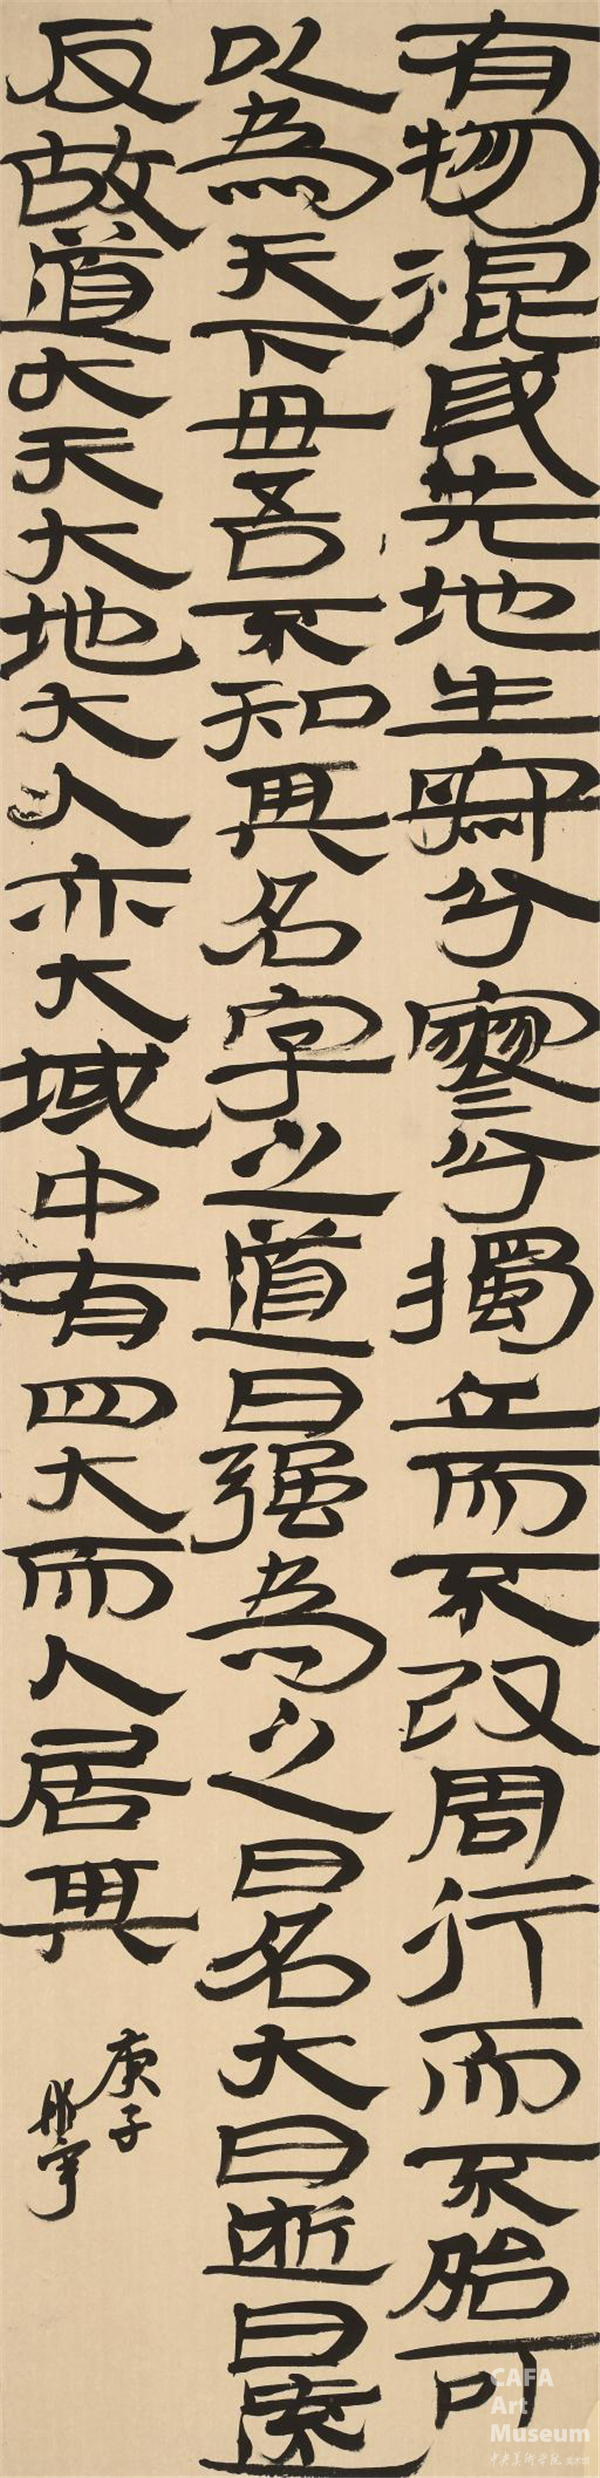 有物混成先地生兮寥兮獨立而不改周行而不殆可
以為天下母吾不知其名字之道曰强為之曰名大曰逝曰遠
反故道大天大地大人亦大域中有四大而人居其
庚子
CAFA
Art
Museum
中央美術學院